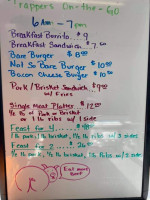 Trappers On-the-Go
6 AM - 7 pm
Breakfast Burrito $9
Breakfast Sandwich $7.50
Bare Burger $8.00
Not So Bare Burger $10.00
Bacon Cheese Burger $10.50
Pork/Brisket Sandwich $9
w/ Fries
Single Meat Platter $12.00
1/2 lb of Pork or Brisket
or 1 lb ribs w/ 1 side
Feast for 4
1 lb pork, 1 lb brisket, 1 lb ribs w/ 3 sides
Feast for 2
1/2 lb pork, 1/2 lb brisket, 1/2 lb ribs w/ 2 sides
Eat more